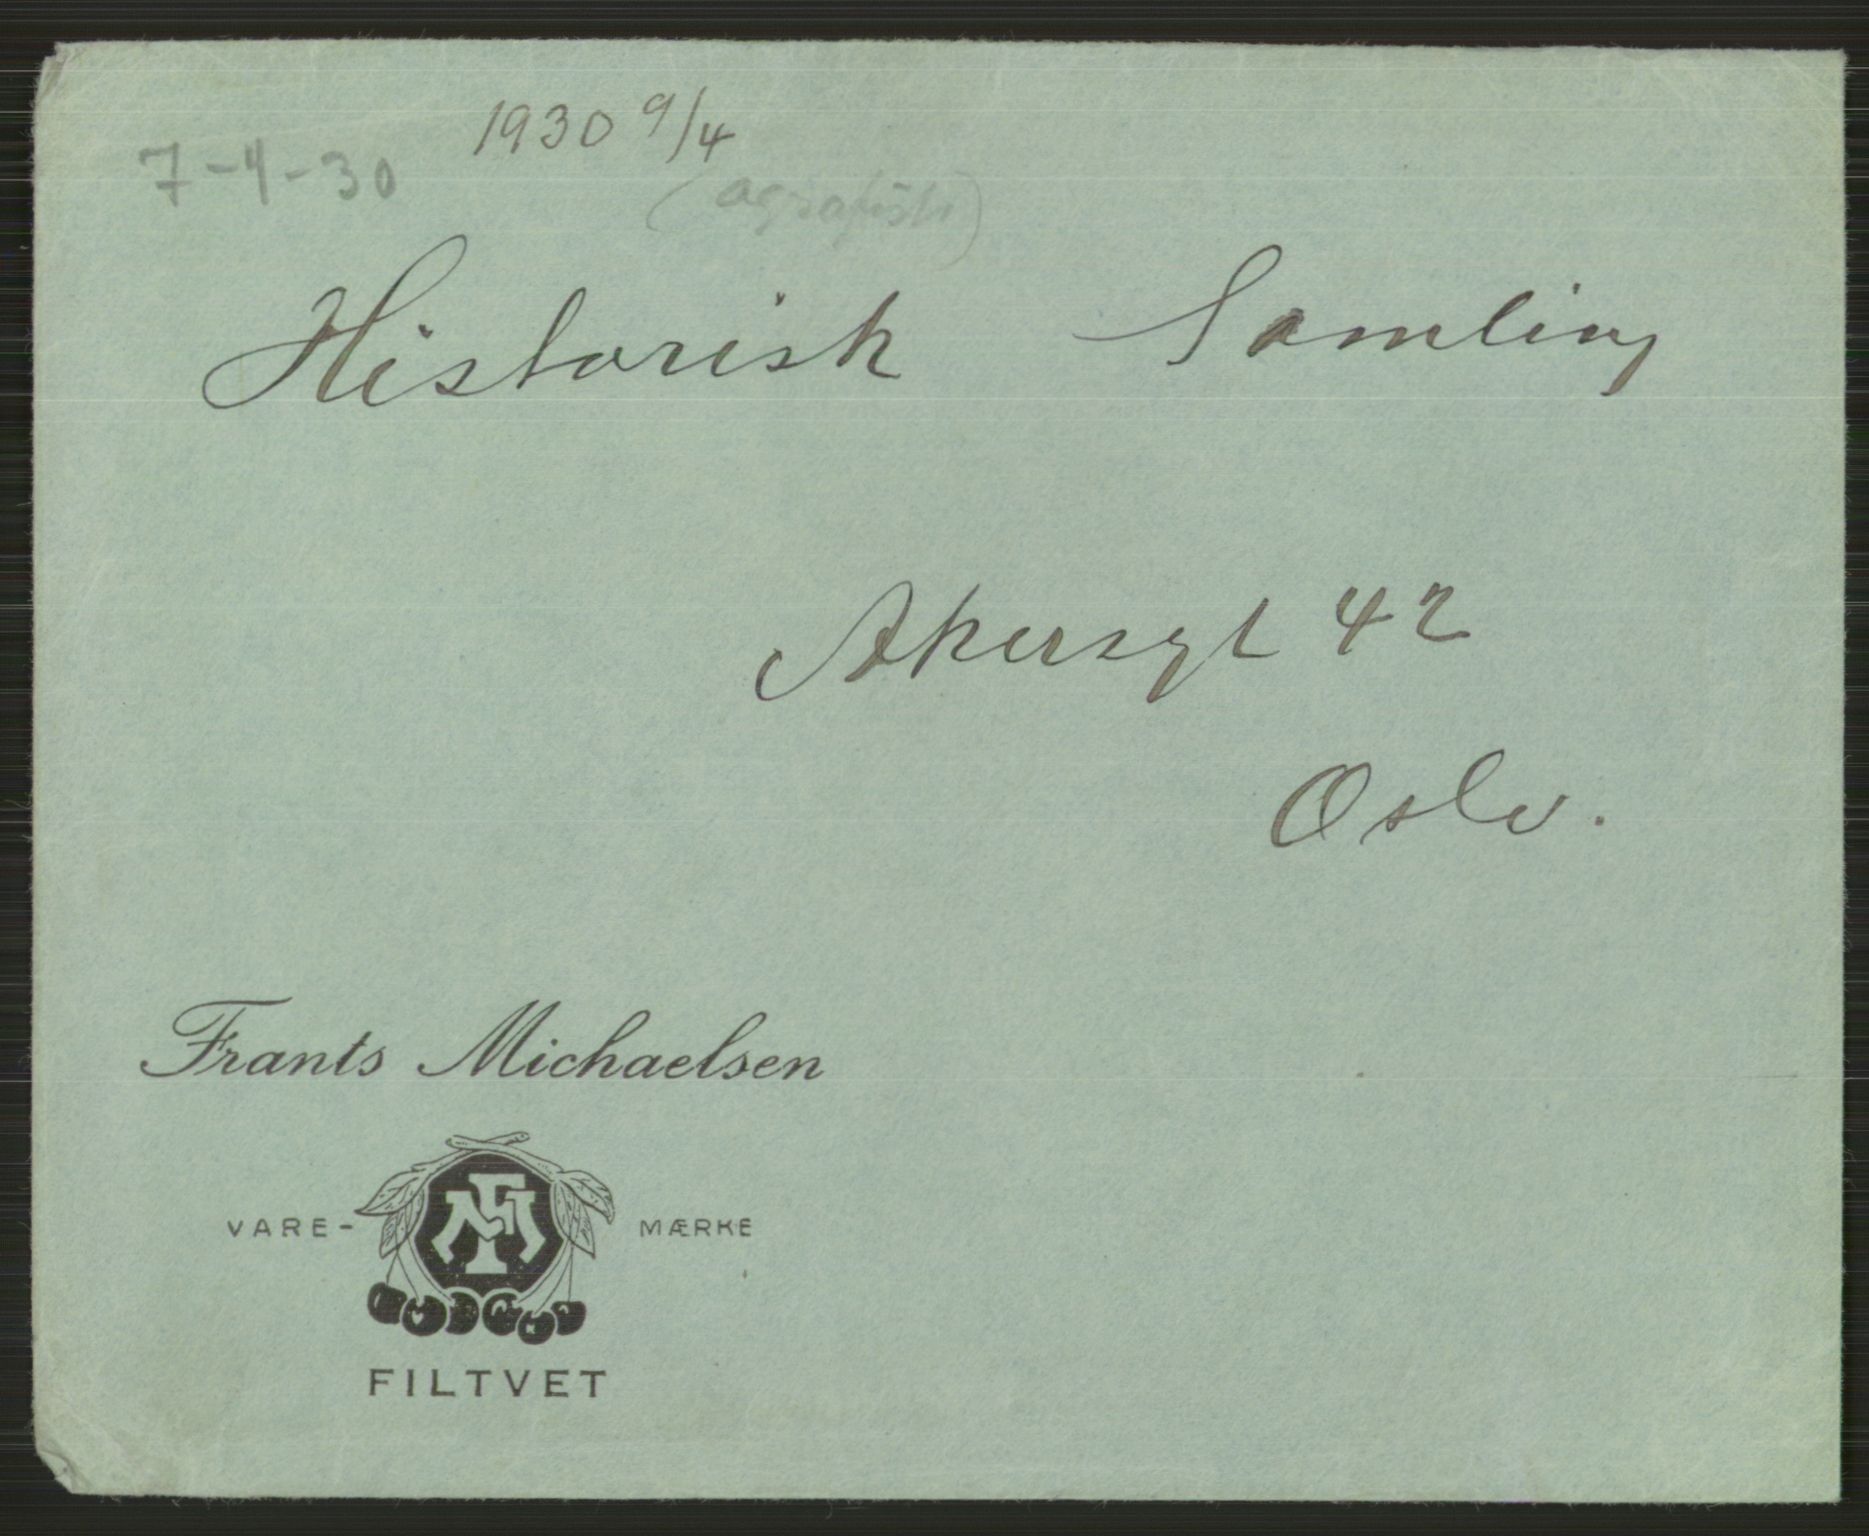 1930 9/4
7-4-30
Historisk Samling
Akersgt 42
Oslo.
Frants Michaelsen
VARE- MÆRKE
FILTVET